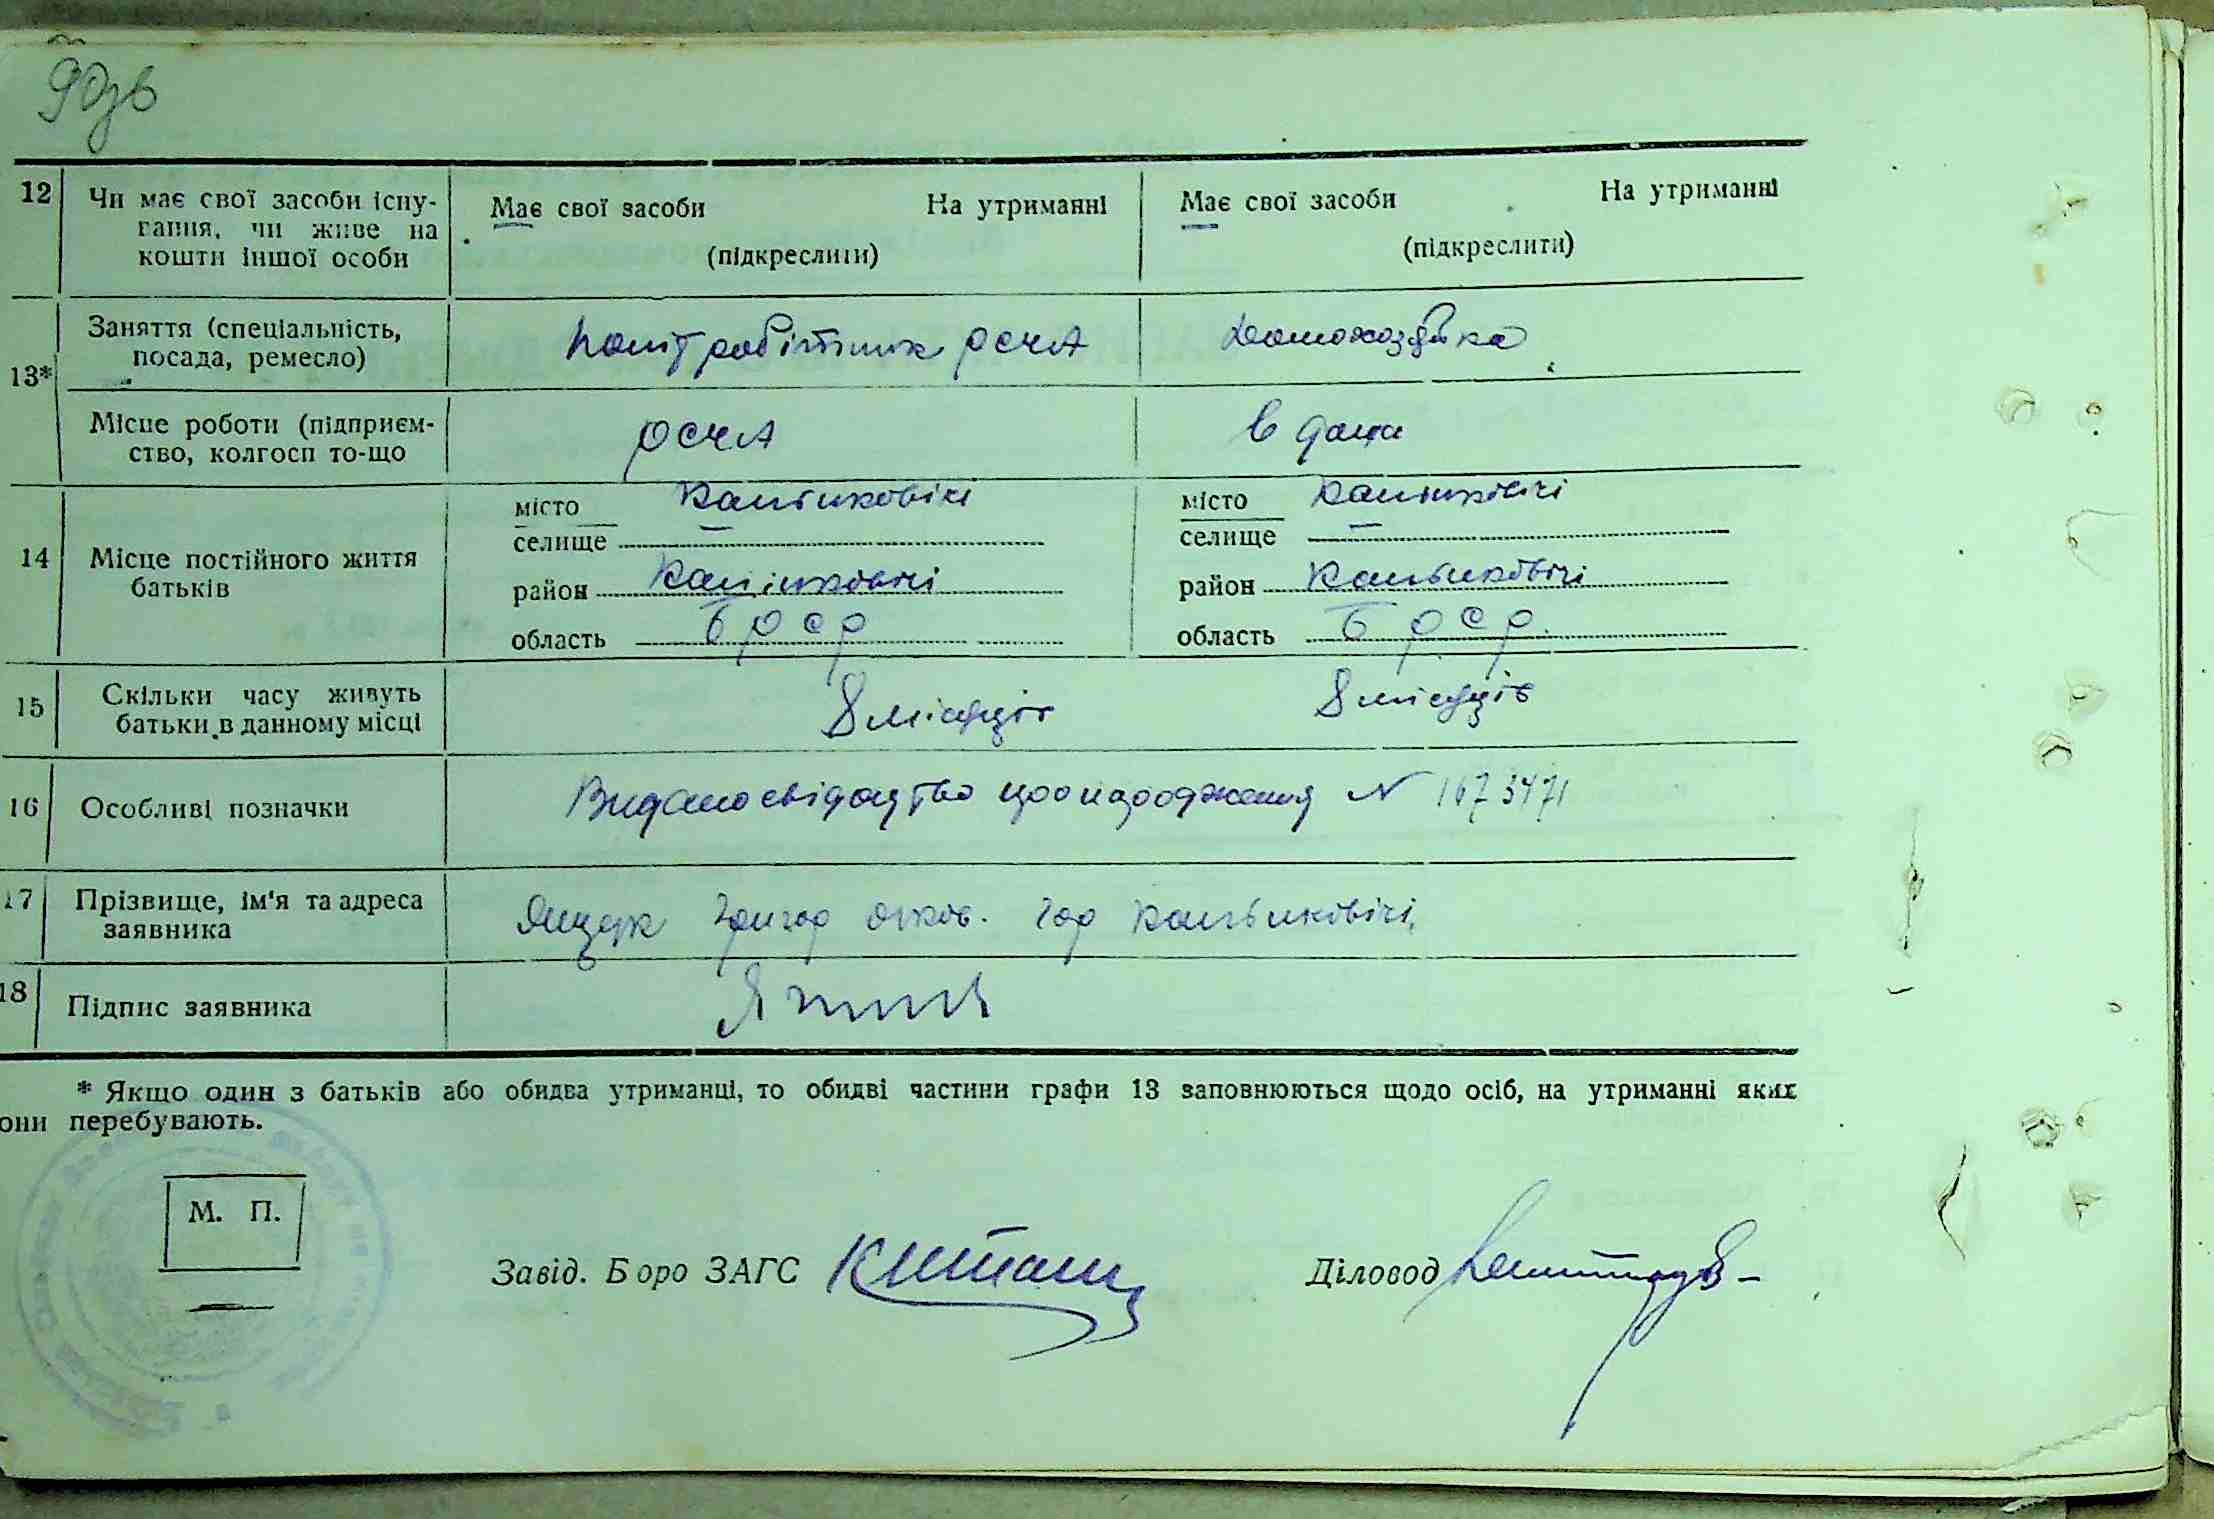 90зв
12 Чи має свої засоби існу- Має свої засоби На утриманні Має свої засоби На утриманні
вання, чи живе на
кошти іншої особи (підкреслити) (підкреслити)
13* Заняття (спеціальність, політробітник РСЧА домохозяйка
посада, ремесло)
Місце роботи (підприєм- РСЧА в дома
ство, колгосп то-що
14 Місце постійного життя батьків
місто Калінковічі місто Калінковічі
селище селище
район Калінковічі район Калінковічі
область БРСР область БРСР
15 Скільки часу живуть 8 місяців 8 місяців
батьки в данному місці
16 Особливі позначки Видано свідоцтво про народження N 1673471
17 Прізвище, ім'я та адреса Ящук Григор гор Калінковічі
заявника
18 Підпис заявника
* Якщо один з батьків або обидва утриманці, то обидві частини графи 13 заповнюються щодо осіб, на утриманні яких
они перебувають.
М. П.
Завід. Боро ЗАГС Діловод